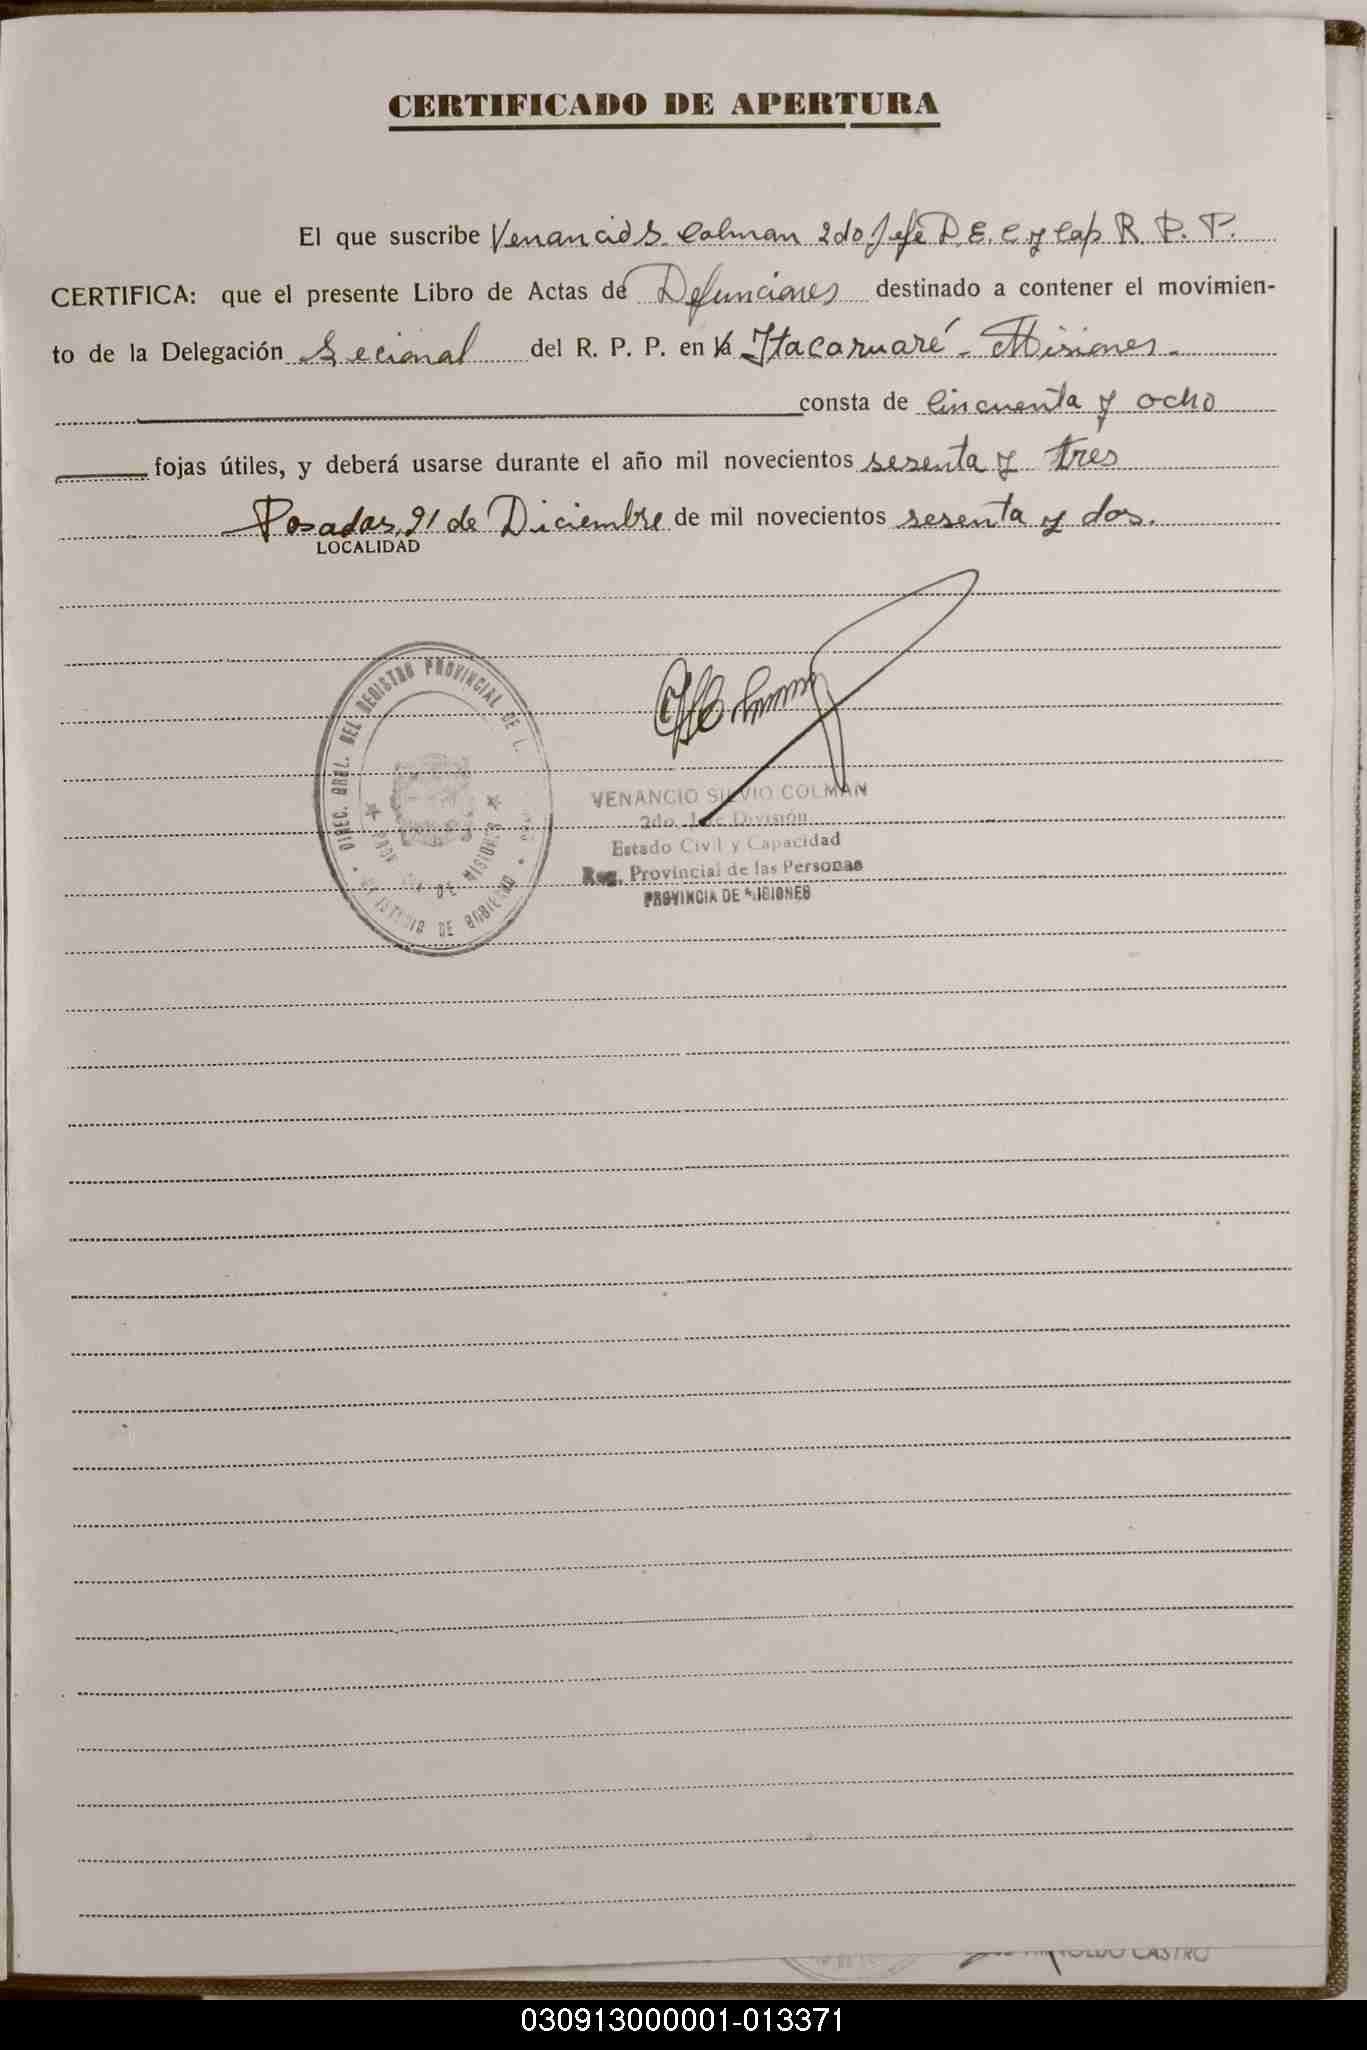 CERTIFICADO DE APERTURA
El que suscribe Venancio S. Colman 2do Jefe D. E. C. y Cap R. P. P.
CERTIFICA: que el presente Libro de Actas de Defunciones destinado a contener el movimien-
to de la Delegación Secional del R. P. P. en Itacaruaré - Misiones -
consta de Cincuenta y ocho
fojas útiles, y deberá usarse durante el año mil novecientos sesenta y tres
Posadas, 21 de Diciembre de mil novecientos sesenta y dos.
LOCALIDAD
DIREC. GRAL. DEL REGISTRO PROVINCIAL DE L
DE MISIONES
DE GOBIERNO
VENANCIO SILVIO COLMAN
2do. Jefe División
Estado Civil y Capacidad
Reg. Provincial de las Personas
PROVINCIA DE MISIONES
CASTRO
030913000001-013371